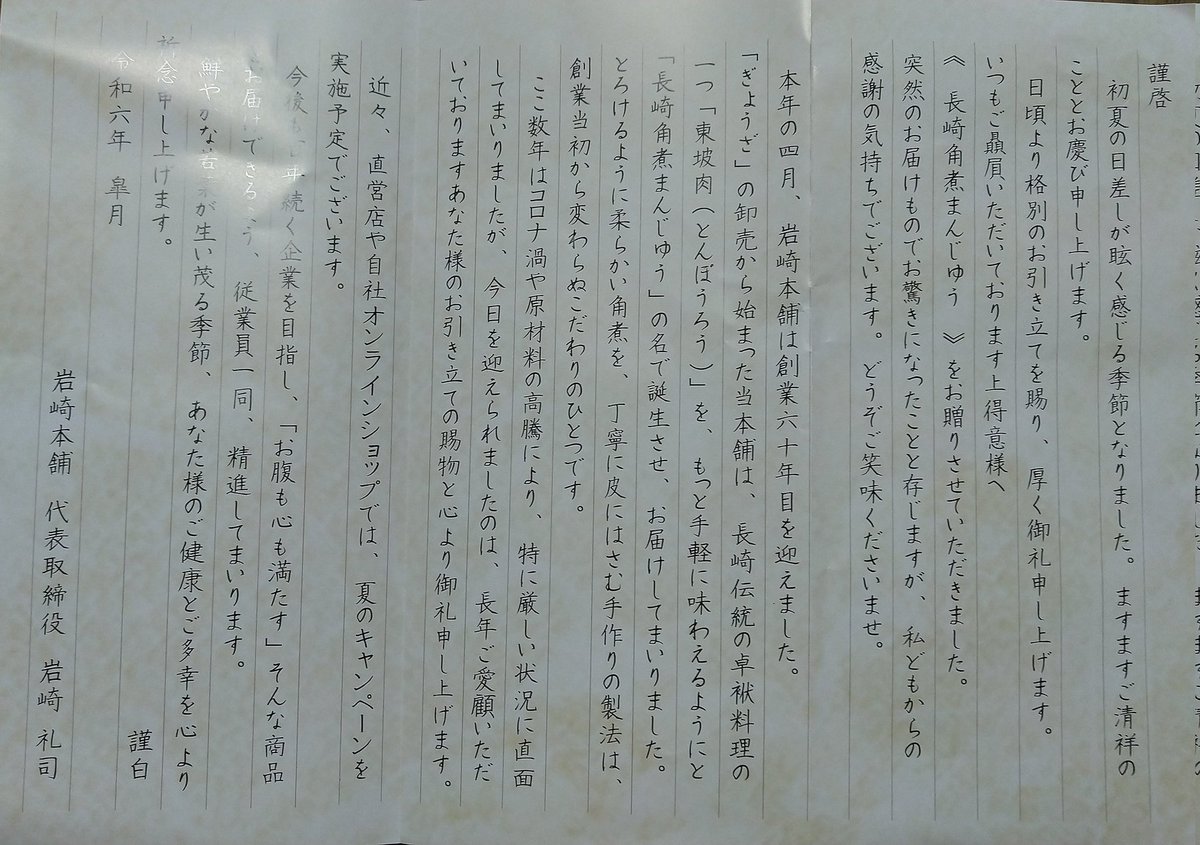 謹啓
初夏の日差しが眩く感じる季節となりました。ますますご清祥の
こととお慶び申し上げます。
日頃より格別のお引き立てを賜り、厚く御礼申し上げます。
いつもご贔屓いただいております上得意様へ
《 長崎角煮まんじゅう 》をお贈りさせていただきました。
突然のお届けもので、お驚きになったことと存じますが、私どもからの
感謝の気持ちでございます。どうぞご笑味くださいませ。
本年の四月、岩崎本舗は創業六十年目を迎えました。
「ぎょうざ」の卸売から始まった当本舗は、長崎伝統の卓袱料理の
一つ「東坡肉（とんぽうろう）」を、もっと手軽に味わえるようにと
「長崎角煮まんじゅう」の名で誕生させ、お届けしてまいりました。
とろけるように柔らかい角煮を、丁寧に皮にはさむ手作りの製法は、
創業当初から変わらぬこだわりのひとつです。
ここ数年はコロナ渦や原材料の高騰により、特に厳しい状況に直面
してまいりましたが、今日を迎えられましたのは、長年ご愛顧いただ
いておりますあなた様のお引き立ての賜物と心より御礼申し上げます。
近々、直営店や自社オンラインショップでは、夏のキャンペーンを
実施予定でございます。
今後も 年続く企業を目指し、「お腹も心も満たす」そんな商品
をお届けできるよう、従業員一同、精進してまいります。
鮮やかな若葉が生い茂る季節、あなた様のご健康とご多幸を心より
祈念申し上げます。
謹白
令和六年 皐月
岩崎本舗 代表取締役 岩崎 礼司